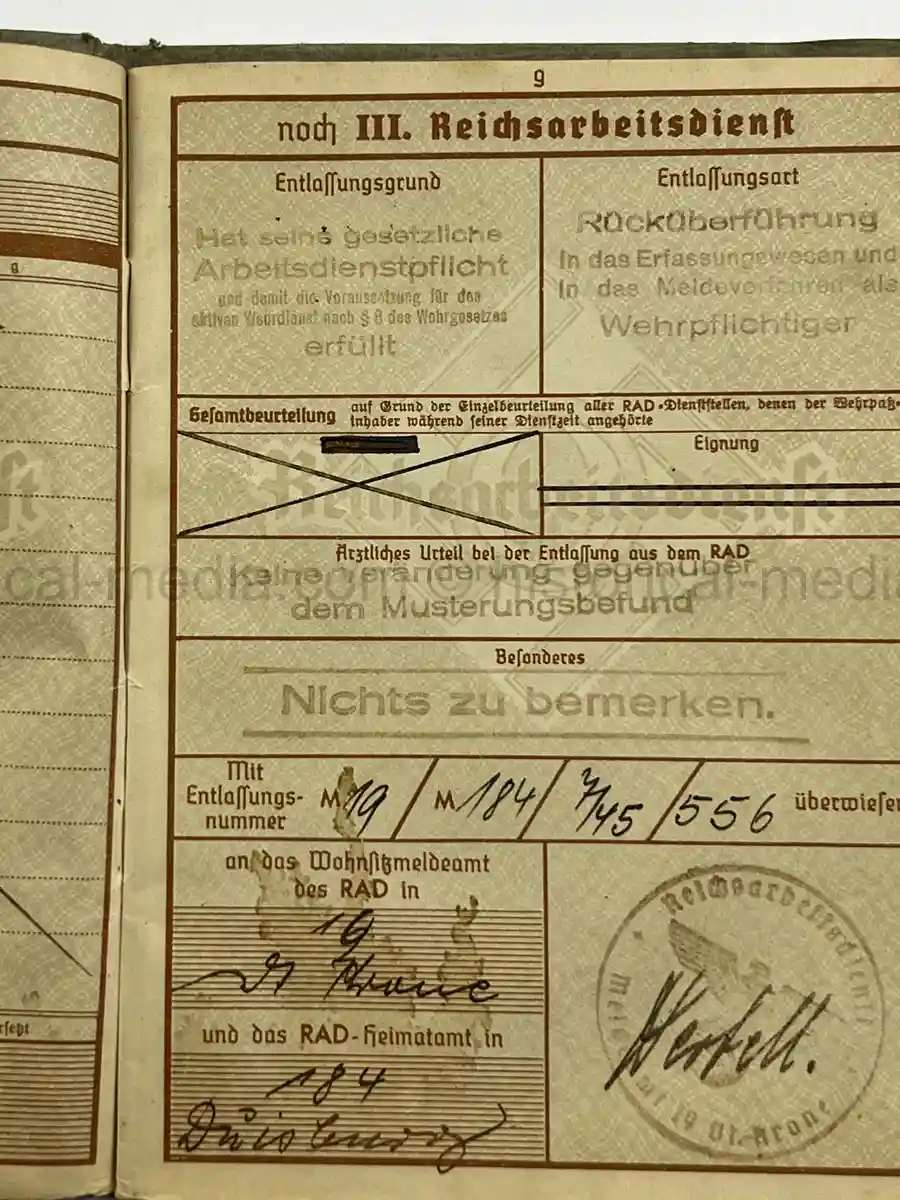 9
noch III. Reichsarbeitsdienst
Entlassungsgrund
Hat seine gesetzliche
Arbeitsdienstpflicht
und damit die Voraussetzung für den
aktiven Wehrdienst nach § 8 des Wehrgesetzes
erfüllt
Entlassungsart
Rücküberführung
In das Erfassungswesen und
In das Meldeverfahren als
Wehrpflichtiger
Gesamtbeurteilung auf Grund der Einzelbeurteilung aller RAD-Dienststellen, denen der Wehrpaß-
inhaber während seiner Dienstzeit angehörte
Eignung
Reichsarbeitsdienst
Ärztliches Urteil bei der Entlassung aus dem RAD
Keine Veränderung gegenüber
dem Musterungsbefund
cal-media.com historical-media
Besonderes
Nichts zu bemerken.
Mit
Entlassungs-
nummer
M 19 / M 184 / 7/45 / 556 überwiesen
an das Wohnsitzmeldeamt
des RAD in
19
Dt Krone
und das RAD-Heimatamt in
184
Duisburg
Reichsarbeitsdienst
19 Dt.-Krone
a
st